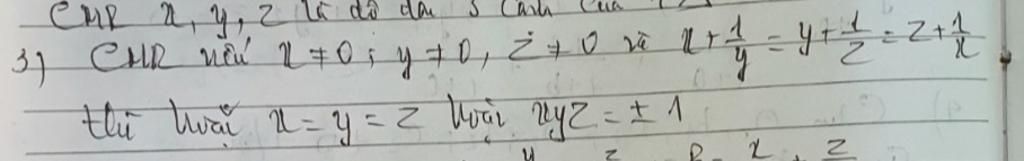 CMR x, y, z là độ dài 3 cạnh của
3) CMR nếu x ≠ 0 ; y ≠ 0, z ≠ 0 và x + 1/y = y + 1/z = z + 1/x
thì hoặc x = y = z hoặc xyz = ± 1